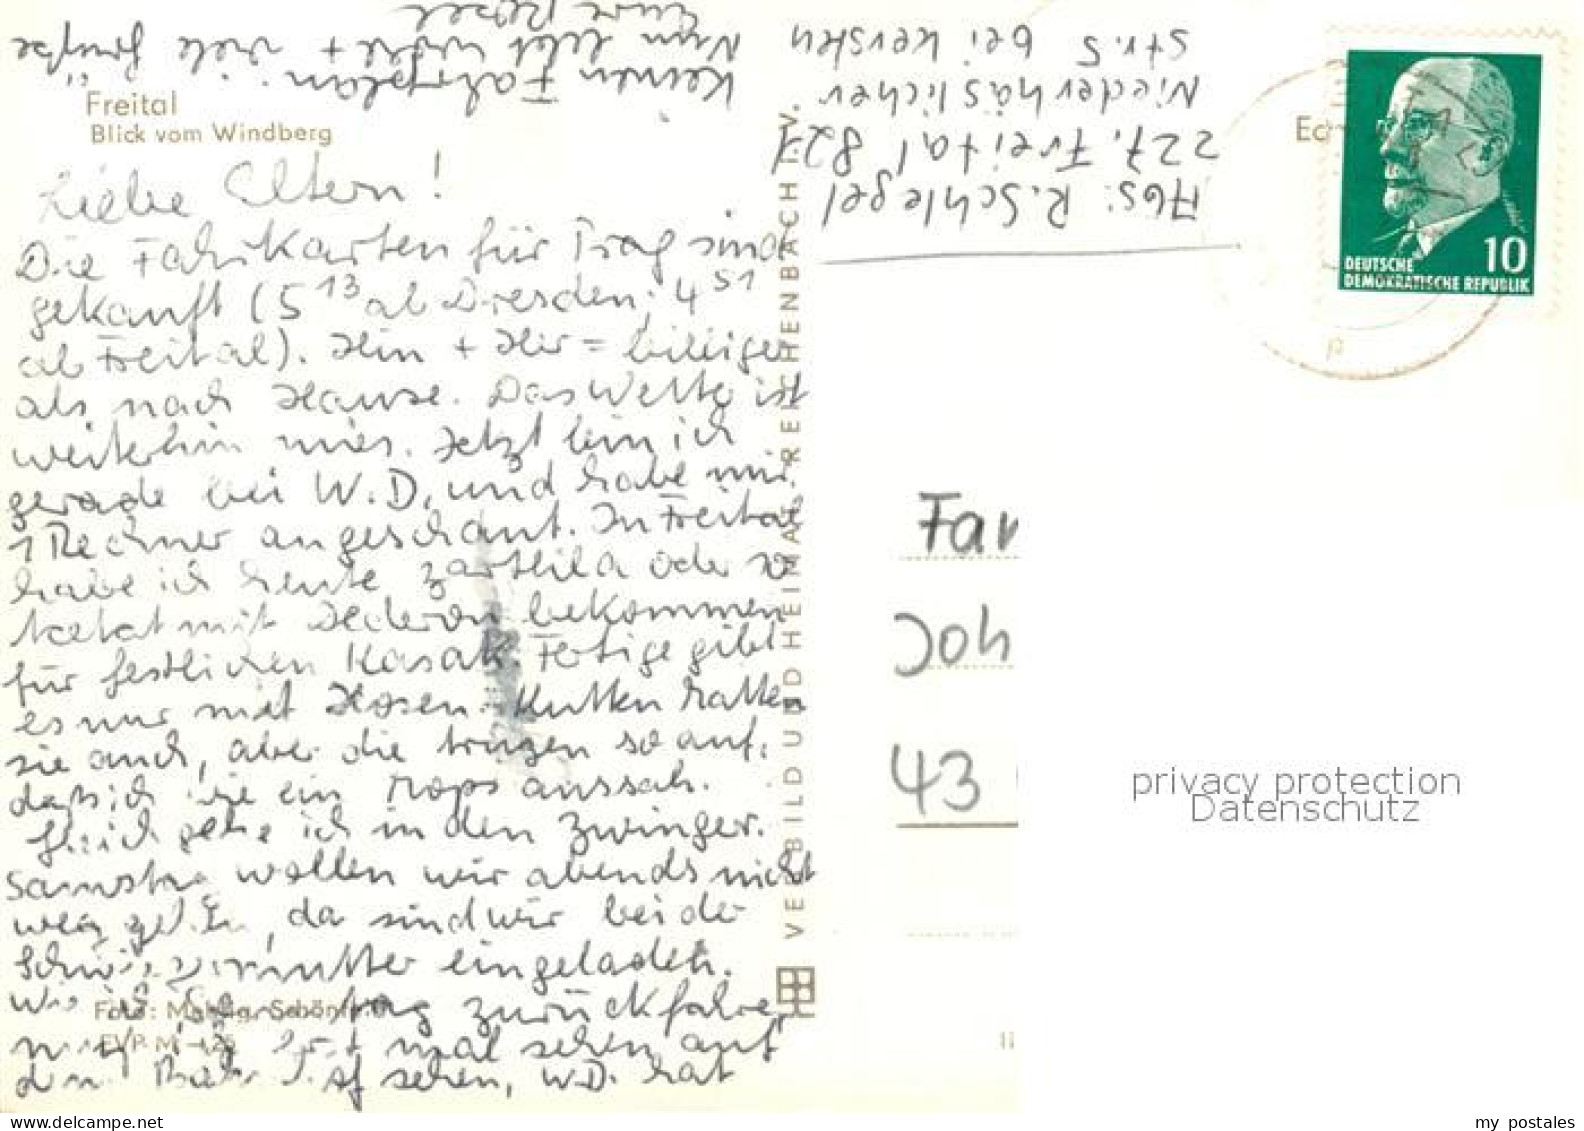 Freital
Blick vom Windberg
Liebe Eltern!
Die Fahrkarten für Prag sind
gekauft (5 13 ab Dresden, 4 51
ab Freital). Hin + Her = billiger
als nach Hause. Das Wetter ist
weiterhin mies. Jetzt bin ich
gerade bei W.D. und habe mir
1 Rechner angeschaut. In Freital
habe ich heute oder so
mit Dederon bekommen
für festlichen Kasak. Fertige gibt
es nur mit Hosen. Kutten hatten
sie auch, aber die trugen so auf,
daß ich wie ein Mops aussah.
gehe ich in den Zwinger.
Samstag wollen wir abends nicht
weg gehen, da sind wir bei der
Schwiegermutter eingeladen.
Wie ich zurückfahre,
muß ich erst mal sehen auf
dem Bahnhof sehen, W.D. hat
keinen Fahrplan.
Nun lebt wohl + viele Grüße
Eure
Foto: Schönfeld
VERL. BILD UND HEIMAT REICHENBACH I. V.
Abs: R. Schlegel
227. Freital 821
Niederhäslicher
Str. 5 bei Kersten
DEUTSCHE
DEMOKRATISCHE REPUBLIK
10
Fam
Joh
43
privacy protection
Datenschutz
delcampe.net
my postales